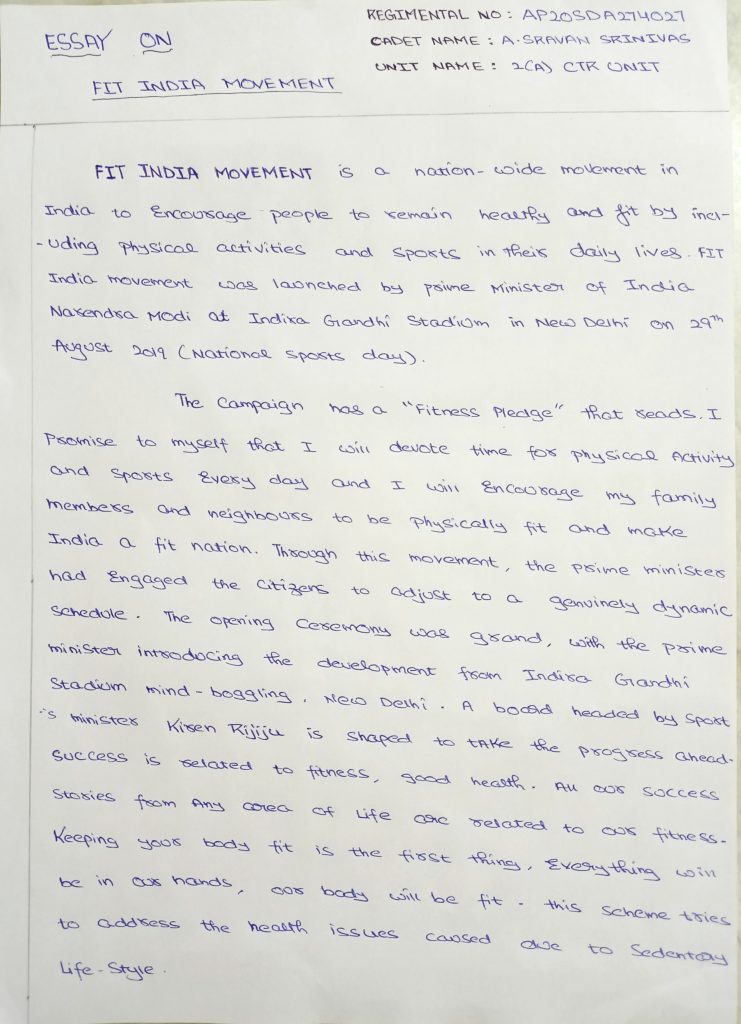 REGIMENTAL NO: AP20SDA274027
ESSAY ON
CADET NAME: A.SRAVAN SRINIVAS
UNIT NAME: 2(A) CTR UNIT
FIT INDIA MOVEMENT
FIT INDIA MOVEMENT is a nation-wide movement in
India to Encourage people to remain healthy and fit by incl-
-uding physical activities and sports in their daily lives. FIT
India movement was launched by prime Minister of India
Narendra Modi at Indira Gandhi Stadium in New Delhi on 29th
August 2019 (National sports day).
The Campaign has a "Fitness Pledge" that reads. I
Promise to myself that I will devote time for physical Activity
and sports Every day and I will Encourage my family
members and neighbours to be physically fit and make
India a fit nation. Through this movement, the prime minister
had Engaged the Citizens to adjust to a genuinely dynamic
schedule. The opening Ceremony was grand, with the prime
minister introducing the development from Indira Gandhi
Stadium mind-boggling. New Delhi. A board headed by Sport
's minister Kiren Rijiju is shaped to take the progress ahead.
Success is related to fitness, good health. All our success
Stories from Any area of Life are related to our fitness.
Keeping your body fit is the first thing, Everything will
be in our hands, our body will be fit. this scheme tries
to address the health issues caused due to Sedentary
Life-Style.